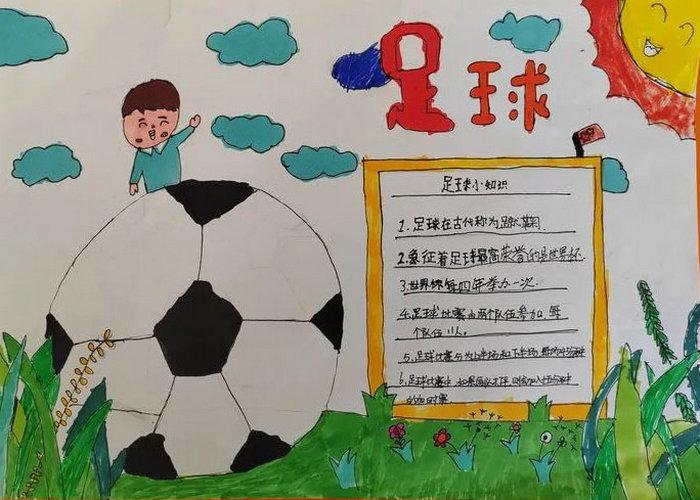 足球
足球小知识
1.足球在古代称为蹴鞠.
2.象征着足球最高荣誉的是世界杯.
3.世界杯每四年举办一次.
4.足球比赛由两个队伍参加,每
个队伍11人.
5.足球比赛分为上半场和下半场,
6.足球比赛中,如果
的加时赛.